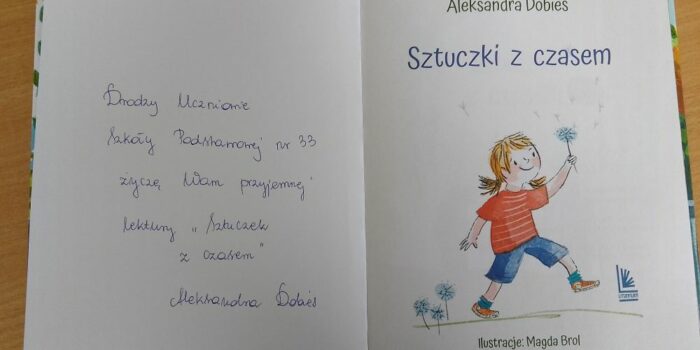 Drodzy Uczniowie
Szkoły Podstawowej nr 33
życzę Wam przyjemnej
lektury „Sztuczek
z czasem"
Aleksandra Dobies
Aleksandra Dobies
Sztuczki z czasem
LITERATURA
Ilustracje: Magda Brol